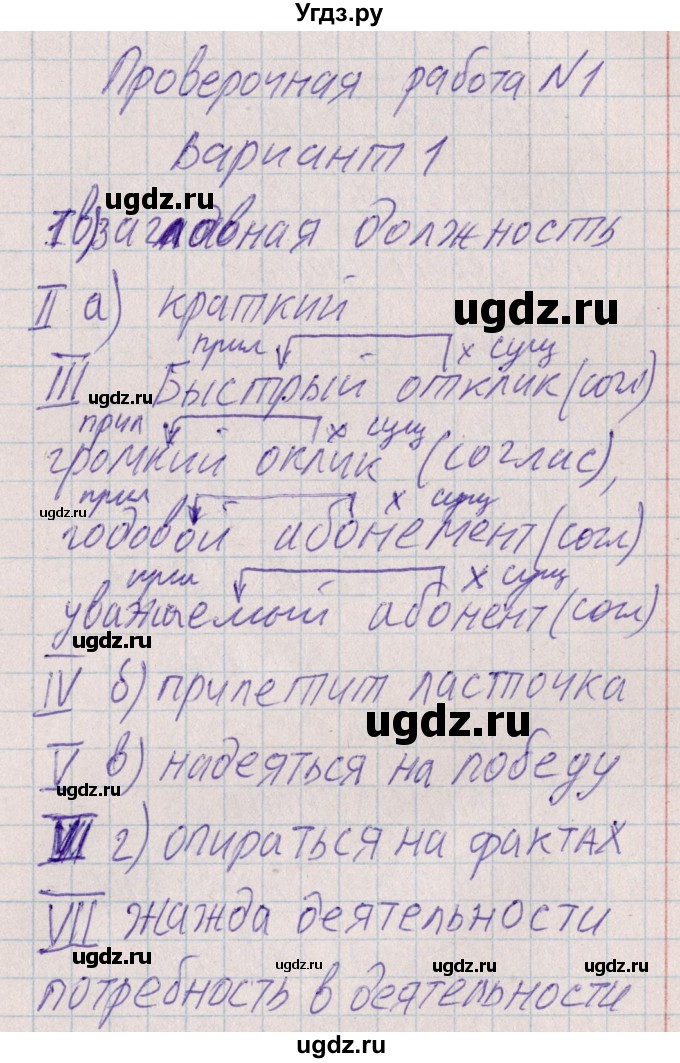 Угдз.ру
Проверочная работа №1
Вариант 1
ugdz.ru
I в) заглавная должность
ugdz.ru
II а) краткий
ugdz.ru
прил х сущ
III Быстрый отклик (согл)
ugdz.ru
прил х сущ
громкий оклик (соглас),
прил х сущ
ugdz.ru
годовой абонемент (согл)
прил х сущ
уважаемый абонент (согл)
ugdz.ru
IV б) прилетит ласточка
ugdz.ru
V в) надеяться на победу
ugdz.ru
VI г) опираться на фактах
VII жажда деятельности
ugdz.ru ugdz.ru ugdz.ru
потребность в деятельности
ugdz.ru